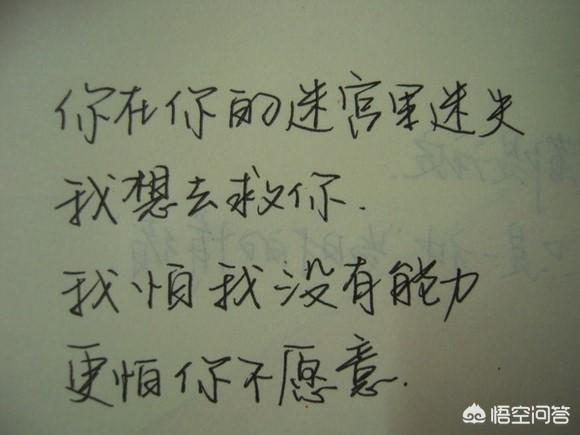 你在你的迷宫里迷失
我想去救你.
我怕我没有能力
更怕你不愿意.
悟空问答